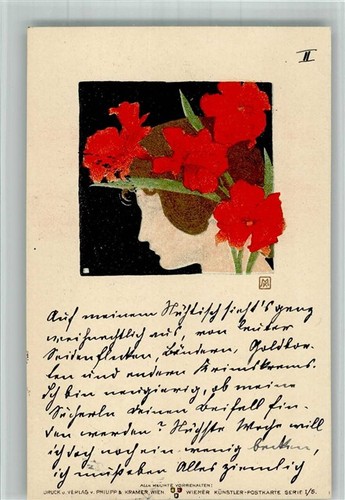 II
Auf meinem Nähtisch sieht's ganz
weihnachtlich aus, von lauter
Seidenflecken, Bändern, Goldbor-
ten und andern Krimskrams.
Ich bin neugierig, ob meine
Sächerln deinen Beifall fin-
den werden? Nächste Woche will
ich doch noch ein wenig
ich muß eben Alles ziemlich
ALLE RECHTE VORBEHALTEN!
DRUCK u. VERLAG v. PHILIPP & KRAMER, WIEN. WIENER KÜNSTLER-POSTKARTE SERIE I/6.